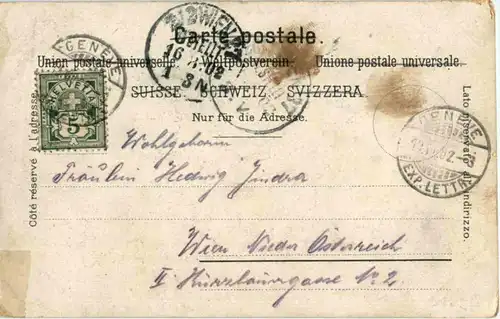 Carte postale.
Union postale universelle. Weltpostverein. Unione postale universale.
SUISSE. SCHWEIZ. SVIZZERA.
Nur für die Adresse.
Côté réservé à l'adresse.
Lato riservato all'indirizzo.
GENÈVE
HELVETIA
5
GENÈVE
EXP. LETTR.
Wohlgeborn
Fräulein Hedwig Jindra
Wien Nieder Österreich
II
No 2.